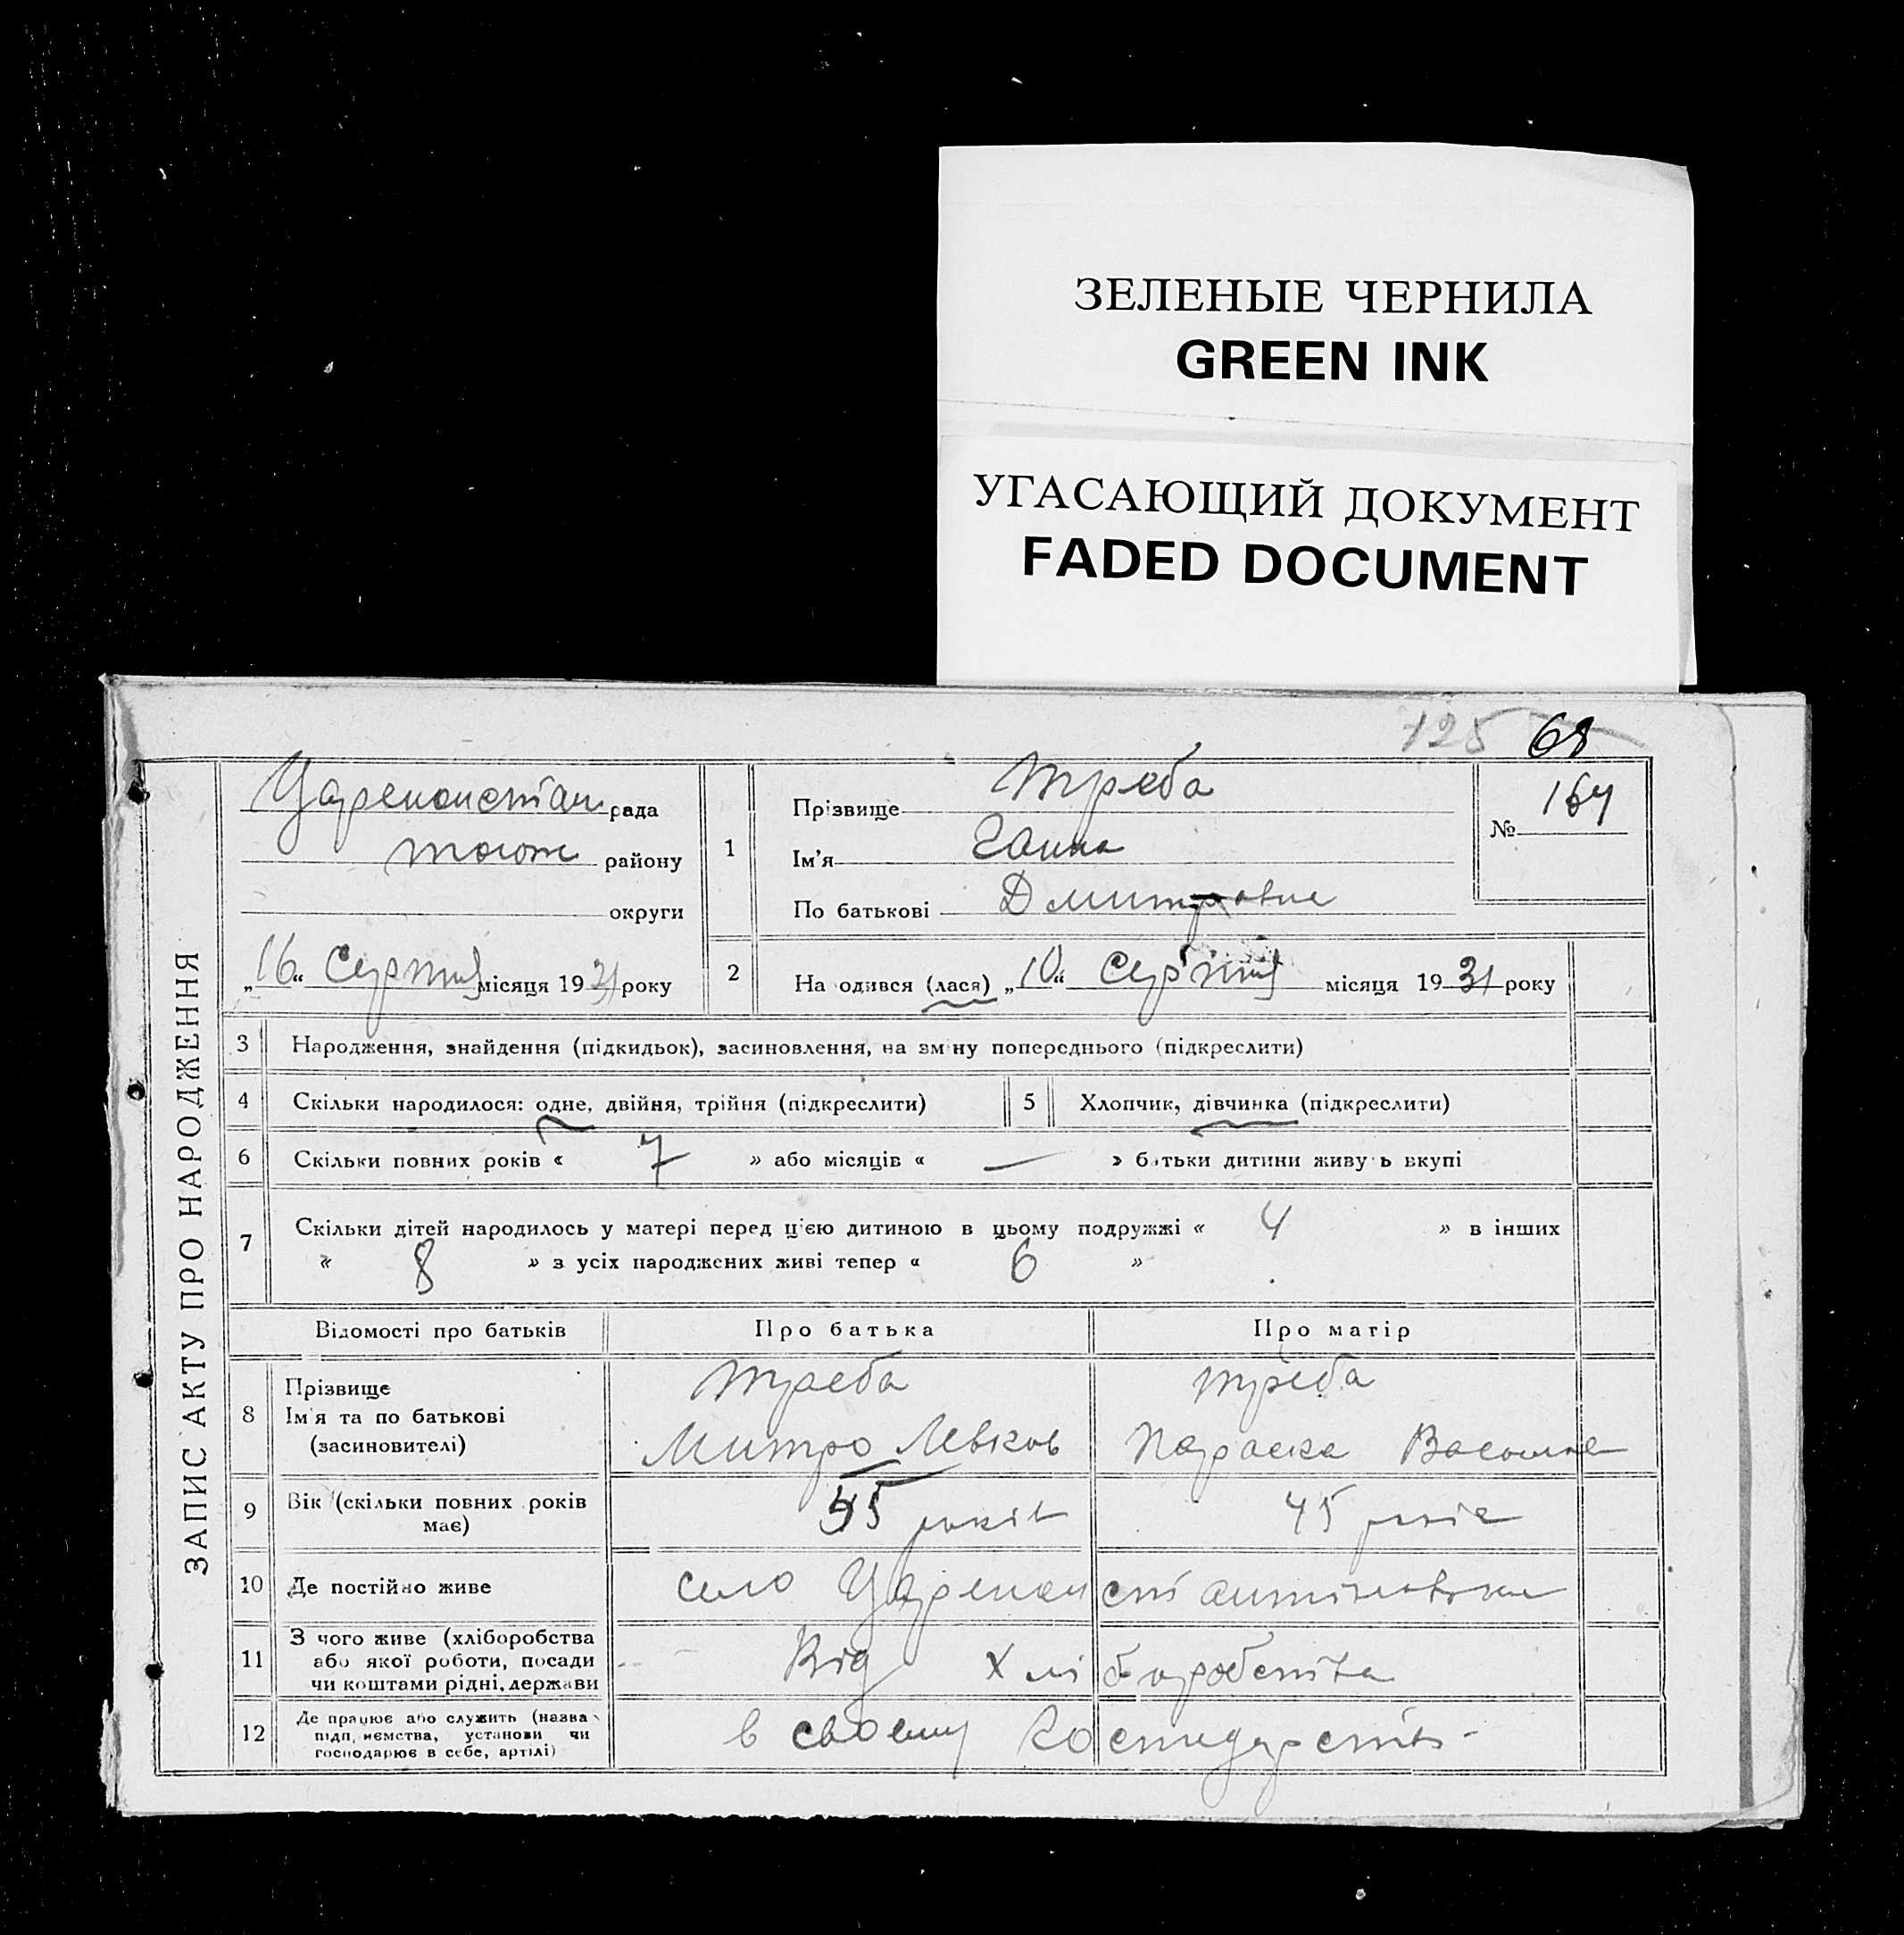 ЗЕЛЕНЫЕ ЧЕРНИЛА
GREEN INK
УГАСАЮЩИЙ ДОКУМЕНТ
FADED DOCUMENT
125 68
ЗАПИС АКТУ ПРО НАРОДЖЕННЯ
Царекопстан рада
району
округи
„16“ Серпня місяця 1931 року
1
Прізвище Треба
Ім'я Ганна
По батькові Дмитровна
№ 164
2 На одився (лася) „10“ Серпня місяця 1931 року
3 Народження, знайдення (підкидьок), засиновлення, на зміну попереднього (підкреслити)
4 Скільки народилося: одне, двійня, трійня (підкреслити) 5 Хлопчик, дівчинка (підкреслити)
6 Скільки повних років « 7 » або місяців « — » батьки дитини живуть вкупі
7 Скільки дітей народилось у матері перед цією дитиною в цьому подружжі « 4 » в інших
« 8 » з усіх народжених живі тепер « 6 »
Відомості про батьків Про батька Про матір
8 Прізвище Треба Треба
Ім'я та по батькові Митро Левков Параска
(засиновителі)
9 Вік (скільки повних років має) 45 років 45 років
10 Де постійно живе село
11 З чого живе (хліборобства
або якої роботи, посади
чи коштами рідні, держави Від Хліборобства
12 Де працює або служить (назва
підприємства, установи чи
господарює в себе, артілі) в своему господарстві